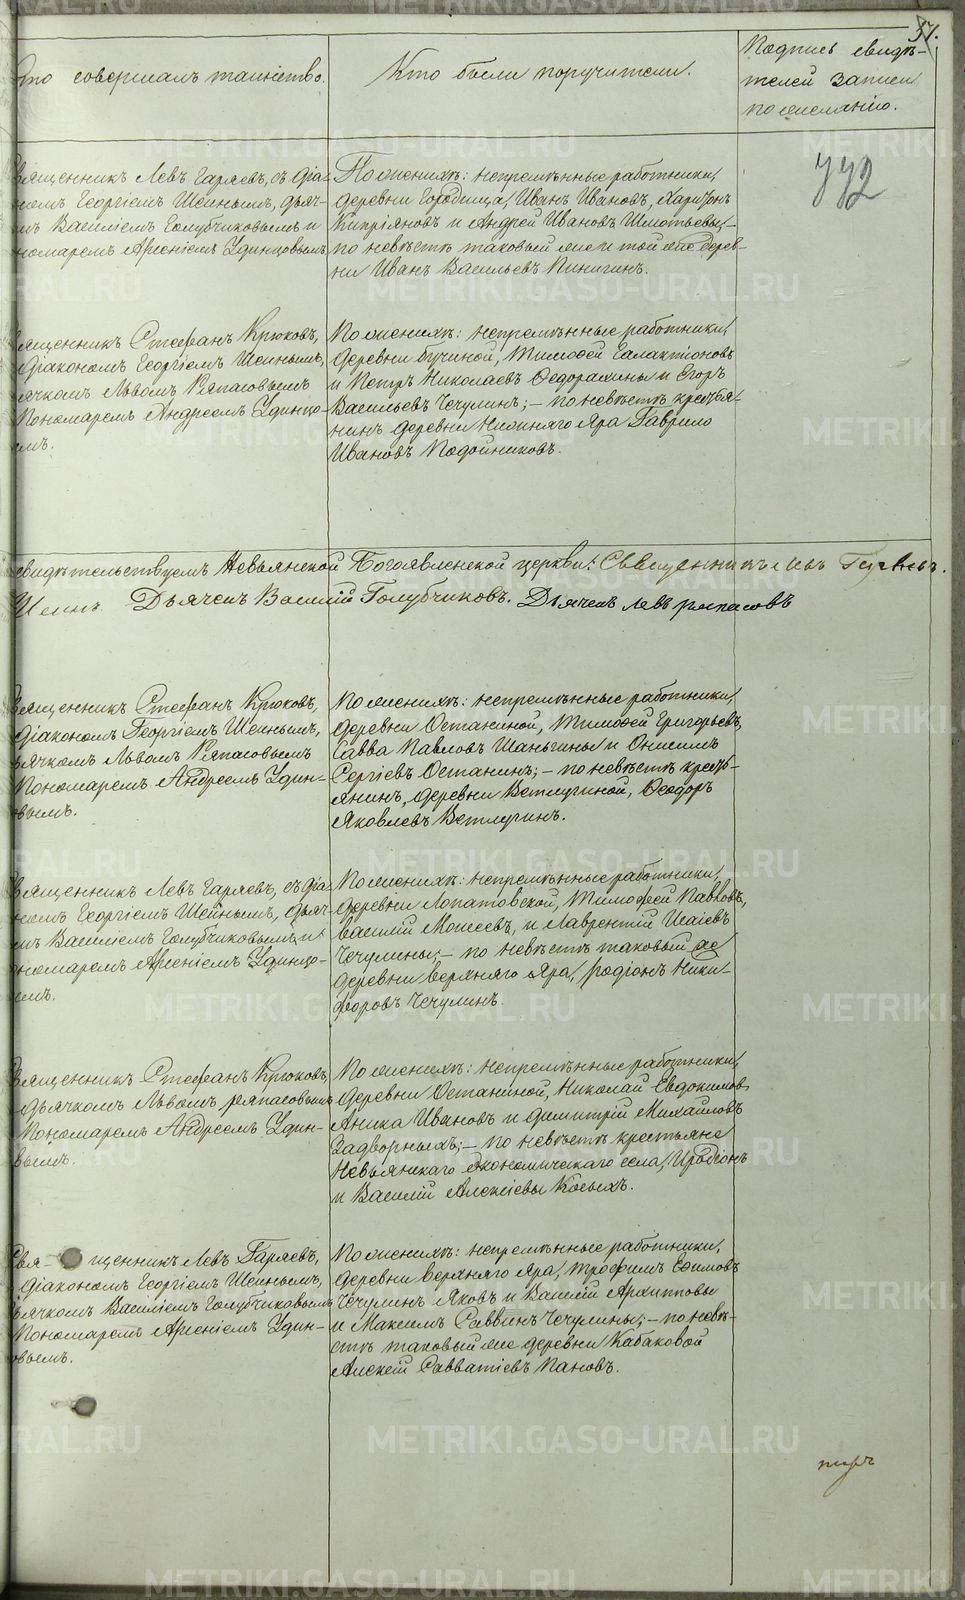 57.
Кто совершалъ таинство.
Кто были поручители.
Подпись свидѣ-
телей записи
по желанію.
792
Священникъ Левъ Гаряевъ, съ діа-
кономъ Георгіемъ Шеинымъ, дьяч-
комъ Василіемъ Голубчиковымъ и
пономаремъ Арсеніемъ Удинцовымъ
По женихѣ: непремѣнные работники,
деревни Городища, Иванъ Ивановъ, Харитонъ
Кипріяновъ и Андрей Ивановъ
по невѣстѣ таковый же и той же дерев-
ни Иванъ Васильевъ Пинигинъ.
Священникъ Стефанъ Крюковъ,
діакономъ Георгіемъ Шеинымъ,
дьячкомъ Львомъ Ряпасовымъ
Пономаремъ Андреемъ Удинцо-
вымъ.
По женихѣ: непремѣнные работники,
деревни Бучиной, Тимофей Галактіоновъ
и Петръ Николаевъ Ѳедорахины и Егоръ
Васильевъ Чечулинъ; — по невѣстѣ крестья-
нинъ деревни Нижняго Яра Гаврило
Ивановъ Подойниковъ.
свидѣтельствуемъ Невьянской Богоявленской церкви: Священникъ Левъ Гаряевъ.
Шеинъ Дьячекъ Василій Голубчиковъ. Дьячекъ Левъ Ряпасовъ
Священникъ Стефанъ Крюковъ,
діакономъ Георгіемъ Шеинымъ,
дьячкомъ Львомъ Ряпасовымъ
Пономаремъ Андреемъ Удин-
цовымъ.
По женихѣ: непремѣнные работники,
деревни Останиной, Тимофей Григорьевъ,
Савва Павловъ Шаньгины и Онисимъ
Сергіевъ Останинъ; — по невѣстѣ кресть-
янинъ, деревни Ветлугиной, Ѳеодоръ
Яковлевъ Ветлугинъ.
Священникъ Левъ Гаряевъ, съ діа-
кономъ Георгіемъ Шеинымъ, дьяч-
комъ Василіемъ Голубчиковымъ, и
пономаремъ Арсеніемъ Удинцо-
вымъ.
По женихѣ: непремѣнные работники,
деревни Лопатовской, Тимофей Павловъ,
Василій Моисеевъ, и Лаврентій Исаіевъ
Чечулины, — по невѣстѣ таковый же
деревни верхняго Яра, Родіонъ Ники-
форовъ Чечулинъ.
Священникъ Стефанъ Крюковъ
дьячкомъ Львомъ Ряпасовымъ
Пономаремъ Андреемъ Удин-
цовымъ.
По женихѣ: непремѣнные работники,
деревни Останиной, Николай Евдокимовъ
Аника Ивановъ и Димитрій Михайловъ
Задворныхъ; — по невѣстѣ крестьяне
Невьянскаго экономическаго села, Иродіонъ
и Василій Алексіевы Косыхъ.
Свя- щенникъ Левъ Гаряевъ,
діакономъ Георгіемъ Шеинымъ,
дьячкомъ Василіемъ Голубчиковымъ
Пономаремъ Арсеніемъ Удин-
цовымъ.
По женихѣ: непремѣнные работники,
деревни верхняго Яра, Трофимъ Ефимовъ
Чечулинъ Яковъ и Василій Архипповы
и Максимъ Саввинъ Чечулины; — по невѣ-
стѣ таковый же деревни Кабаковой
Алексій Савватіевъ Пановъ.
METRIKI.GASO-URAL.RU